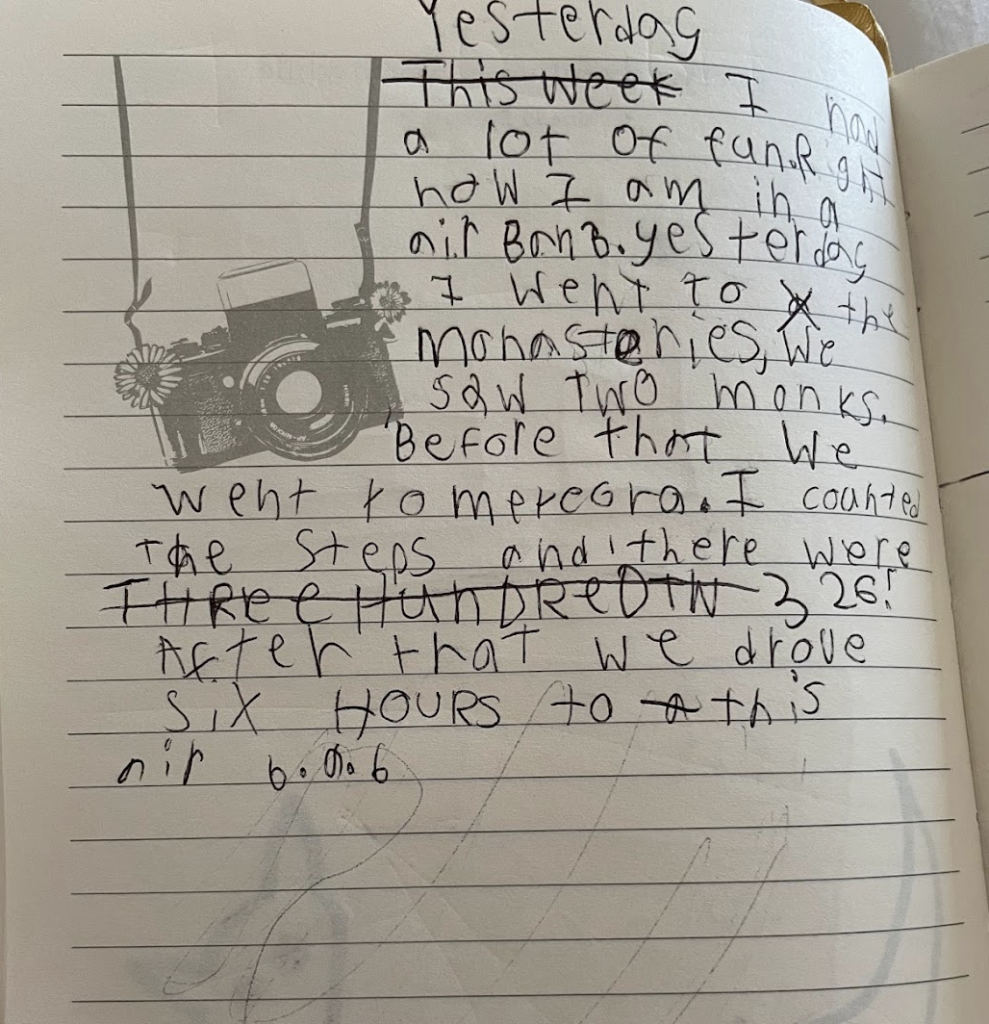 Yesterday
This week I had
a lot of fun. Right
now I am in a
air BnnB. yesterday
I went to the
monasteries, We
saw two monks.
Before that We
went to mereora. I counted
the steps and there were
THRee HunDReDTW 326!
After that we drove
SiX HOURS to a this
air b.n.b